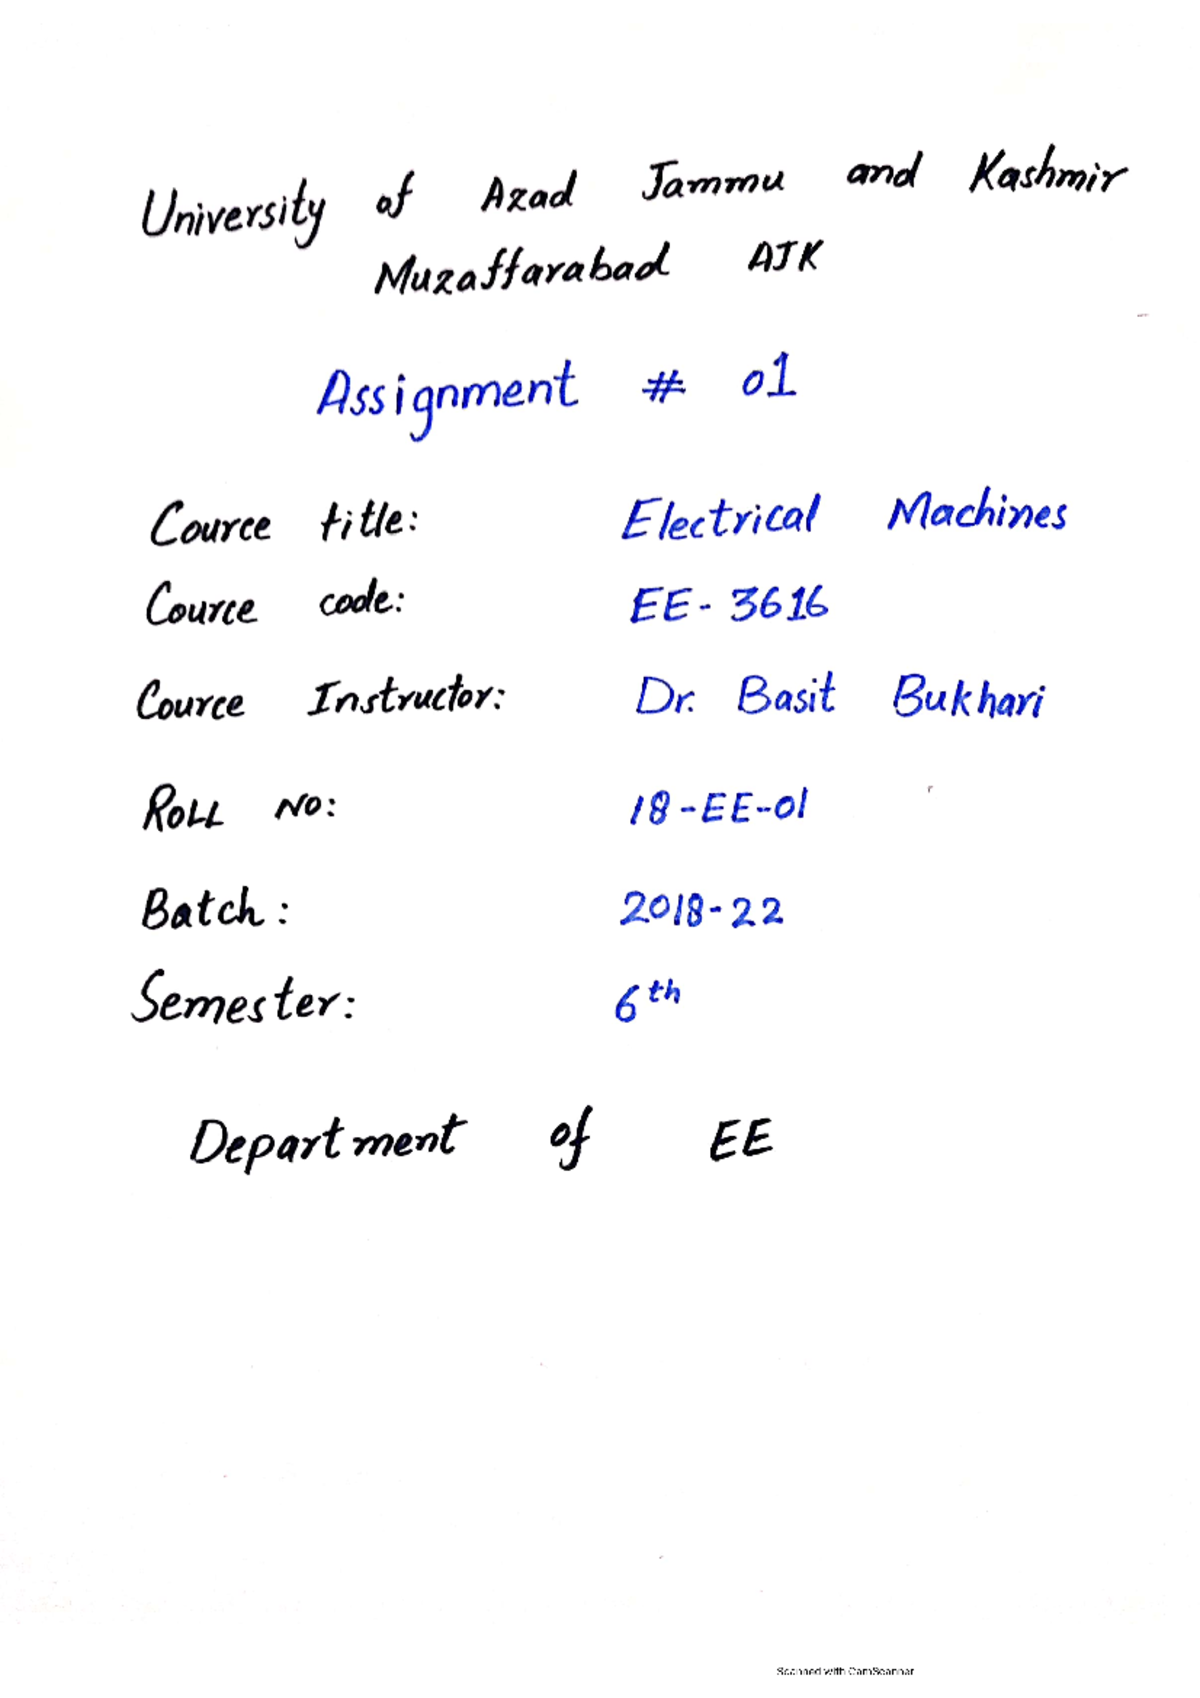 University of Azad Jammu and Kashmir
Muzaffarabad AJK
Assignment # 01
Cource title: Electrical Machines
Cource code: EE- 3616
Cource Instructor: Dr. Basit Bukhari
ROLL NO: 18-EE-01
Batch: 2018-22
Semester: 6th
Department of EE
Scanned with CamScanner